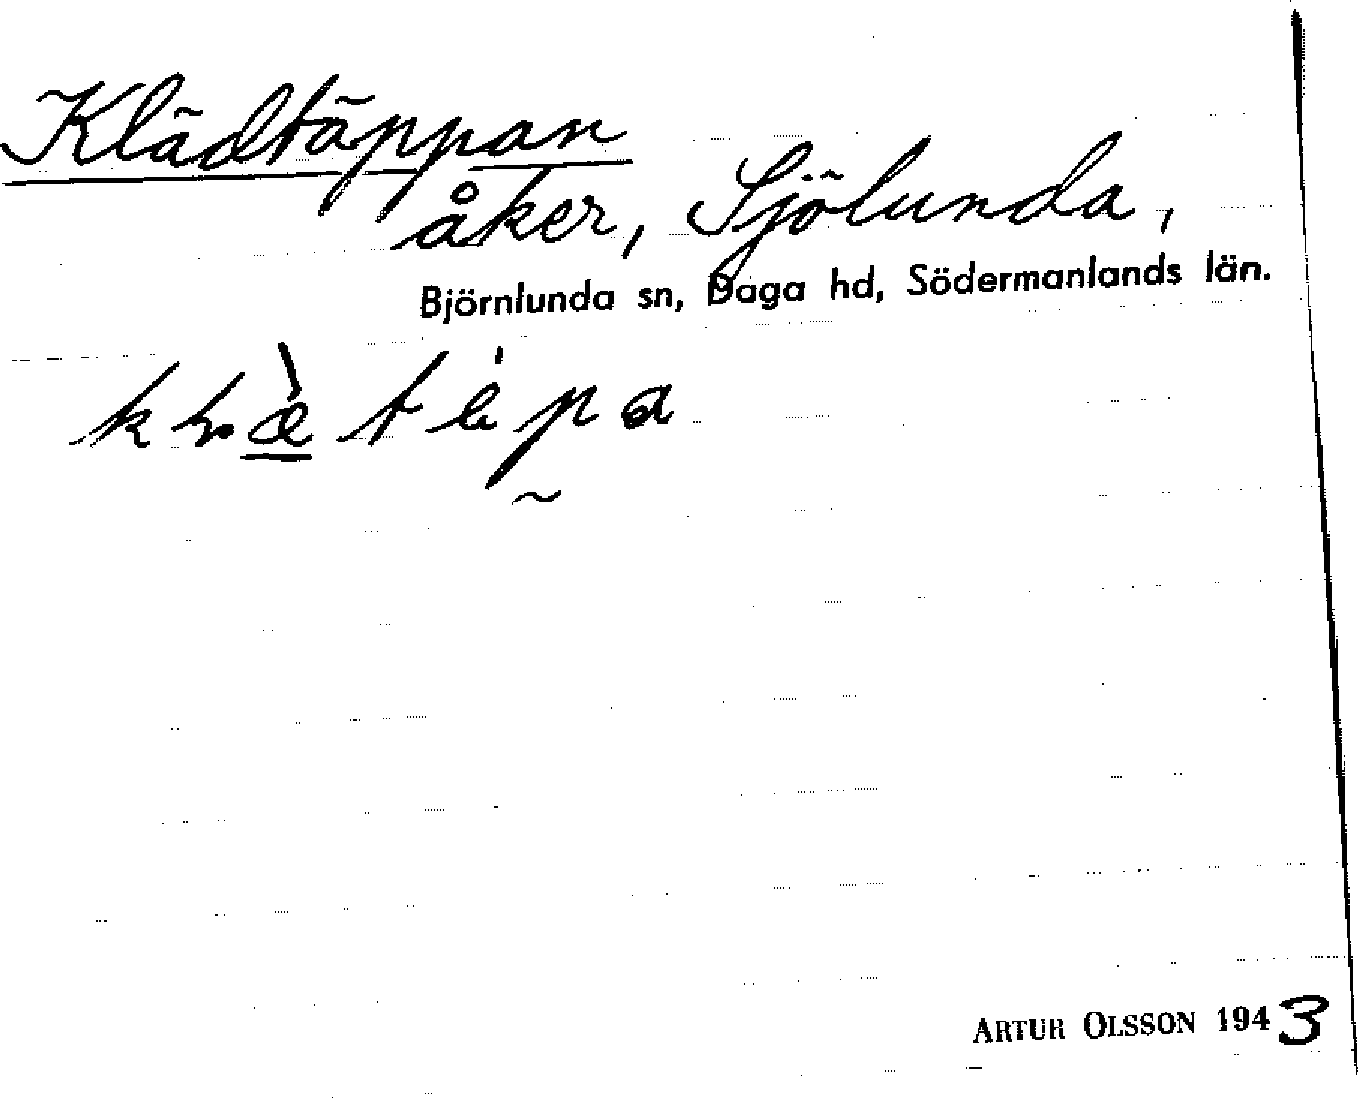 Klädtäppan
åker, Sjölunda,
Björnlunda sn, Daga hd, Södermanlands län.
ARTUR OLSSON 1943